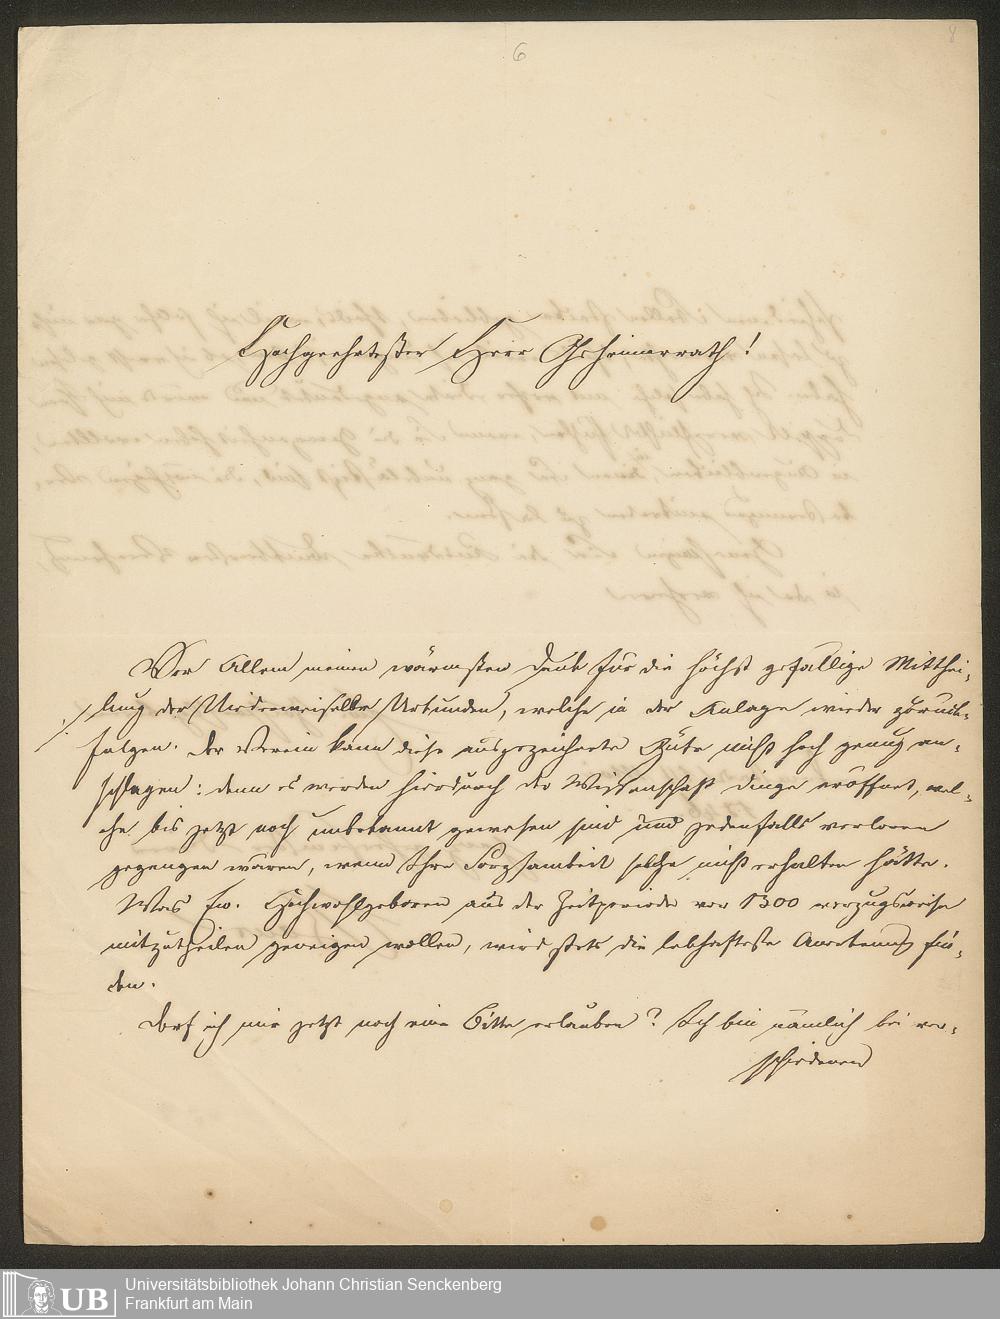 6
8
Hochgeehrtester Herr Geheimerrath!
Vor Allem meinen wärmsten Dank für die höchst gefällige Mitthei-
lung der Niederweiseler Urkunden, welche in der Anlage wieder zurück-
folgen. Der Verein kann diese ausgezeichnete Güte nicht hoch genug an-
schlagen: denn es werden hierdurch der Wissenschaft Dinge eröffnet, wel-
che bis jetzt noch unbekannt gewesen sind und jedenfalls verloren
gegangen wären, wenn Ihre Sorgsamkeit solche nicht erhalten hätte.
Was Ew. Hochwohlgeboren aus der Zeitperiode vor 1300 vorzugsweise
mitzutheilen geneigen wollen, wird stets die lebhafteste Anerkennung fin-
den.
Darf ich mir jetzt noch eine Bitte erlauben? Ich bin nämlich bei ver-
schiedenen
UB Universitätsbibliothek Johann Christian Senckenberg
Frankfurt am Main